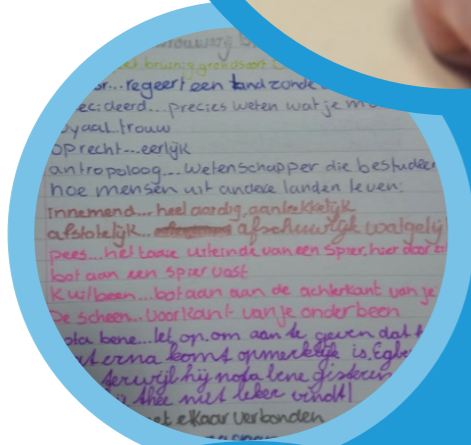 trouwring
het bruinig grondsoort
r...regeert een land zonde
ecideerd...precies weten wat je m
oyaal.trouw
oprecht...eerlijk
antropoloog...wetenschapper die bestudeer
hoe mensen uit andere landen leven.
Innemend...heel aardig, aantrekkelijk
afstotelijk... afschuwelijk walgelij
pees...het taaie uiteinde van een spier, hier door zi
bot aan een spier vast
Kuitbeen...bot aan aan de achterkant van je
De scheen...voorkant van je onderbeen
ota bene...let op. om aan te geven dat
at erna komt opmerkelijk is. Egbe
terwijl hij nota bene gisteren
thee niet lekker vindt!
et elkaar verbonden